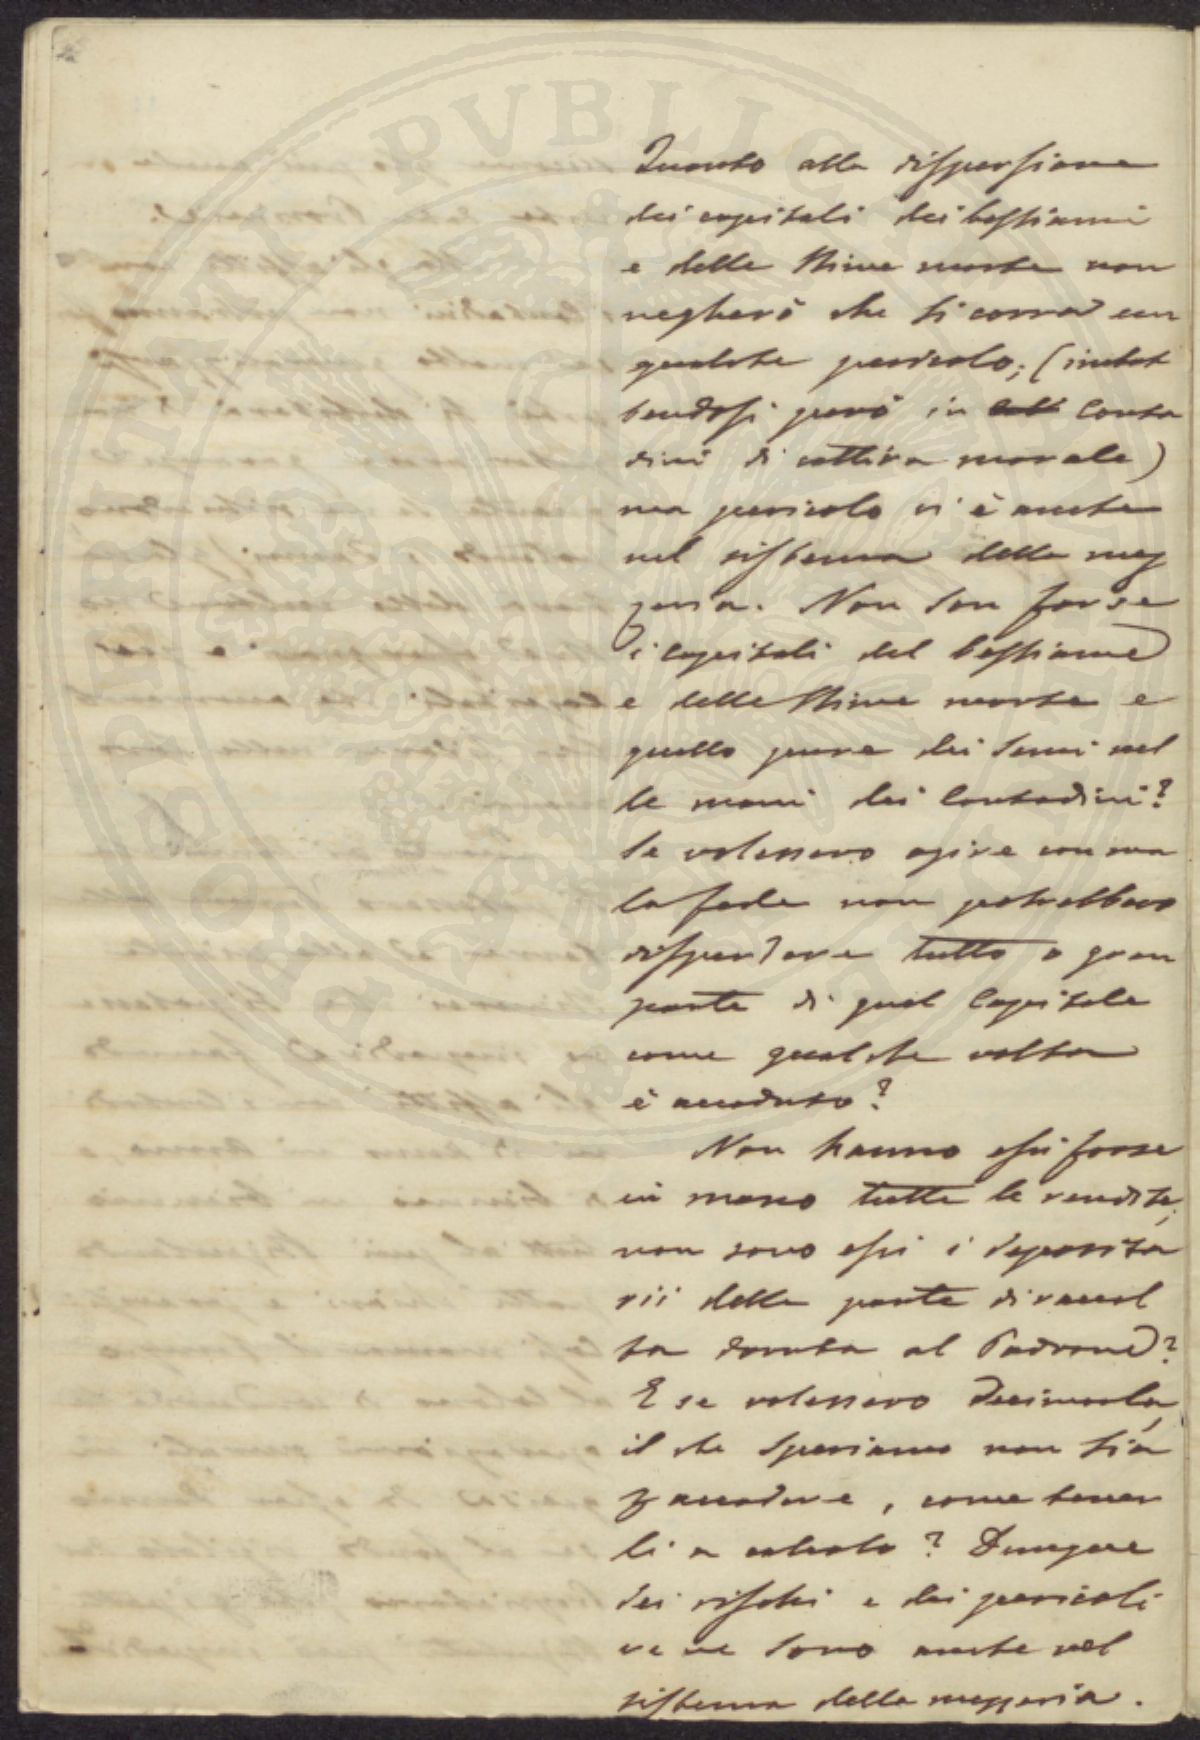 Quanto alla dispersione
dei capitali dei bestiami
e delle stime morte non
negherò che si corra un
qualche pericolo; (imbat
tendosi però in conta
dini di cattiva morale)
ma pericolo vi è anche
nel sistema della mez
zeria. Non son forse
i capitali del bestiame
e delle stime morte e
quello pure dei semi nel
le mani dei Contadini?
Se volessero agire con ma
la fede non potrebbero
disperdere tutto o gran
parte di quel Capitale
come qualche volta
è accaduto?
Non hanno essi forse
in mano tutte le rendite,
non sono essi i deposita
rii della parte di raccol
ta dovuta al Padrone?
E se volessero decimarla,
il che speriamo non sia
per accadere, come tener
li a calcolo? Dunque
dei rischi e dei pericoli
ve ne sono anche nel
sistema della mezzeria.